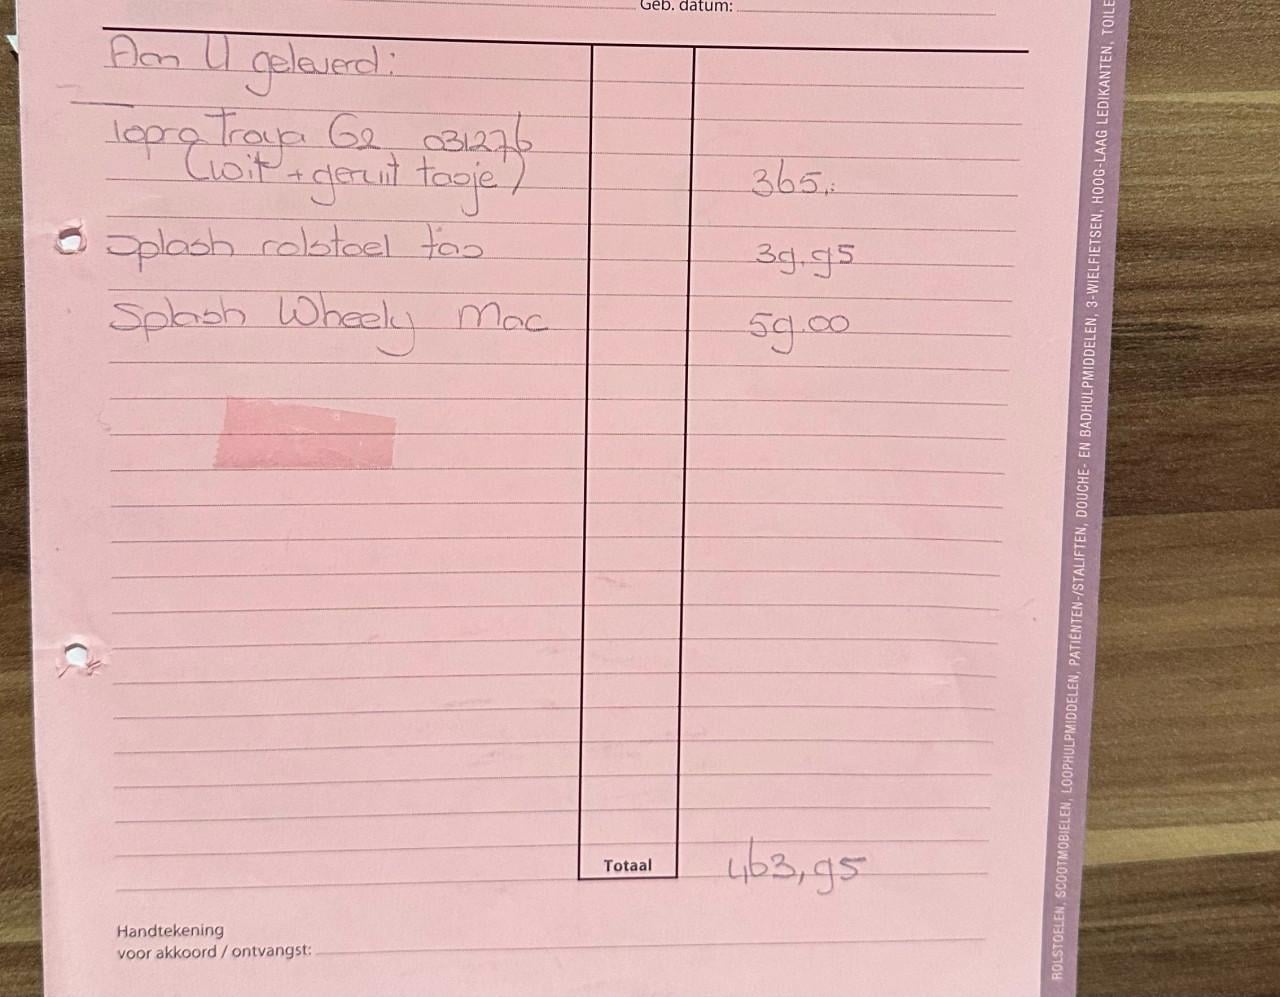 Geb. datum:
Aan U geleverd:
Topro Troya G2 031276
(wit + geruit tasje)
365,-
Splash rolstoel tas 39.95
Splash Wheely Mac 59.00
Totaal 463,95
Handtekening
voor akkoord / ontvangst:
ROLSTOELEN, SCOOTMOBIELEN, LOOPHULPMIDDELEN, PATIËNTEN-/STALIFTEN, DOUCHE- EN BADHULPMIDDELEN, 3-WIELFIETSEN, HOOG-LAAG LEDIKANTEN,